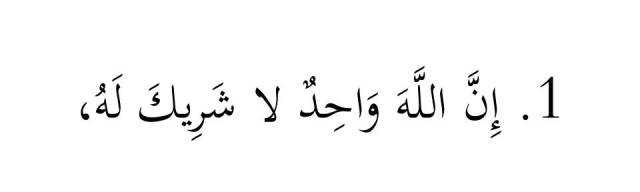 1. إِنَّ اللَّهَ وَاحِدٌ لا شَرِيكَ لَهُ،